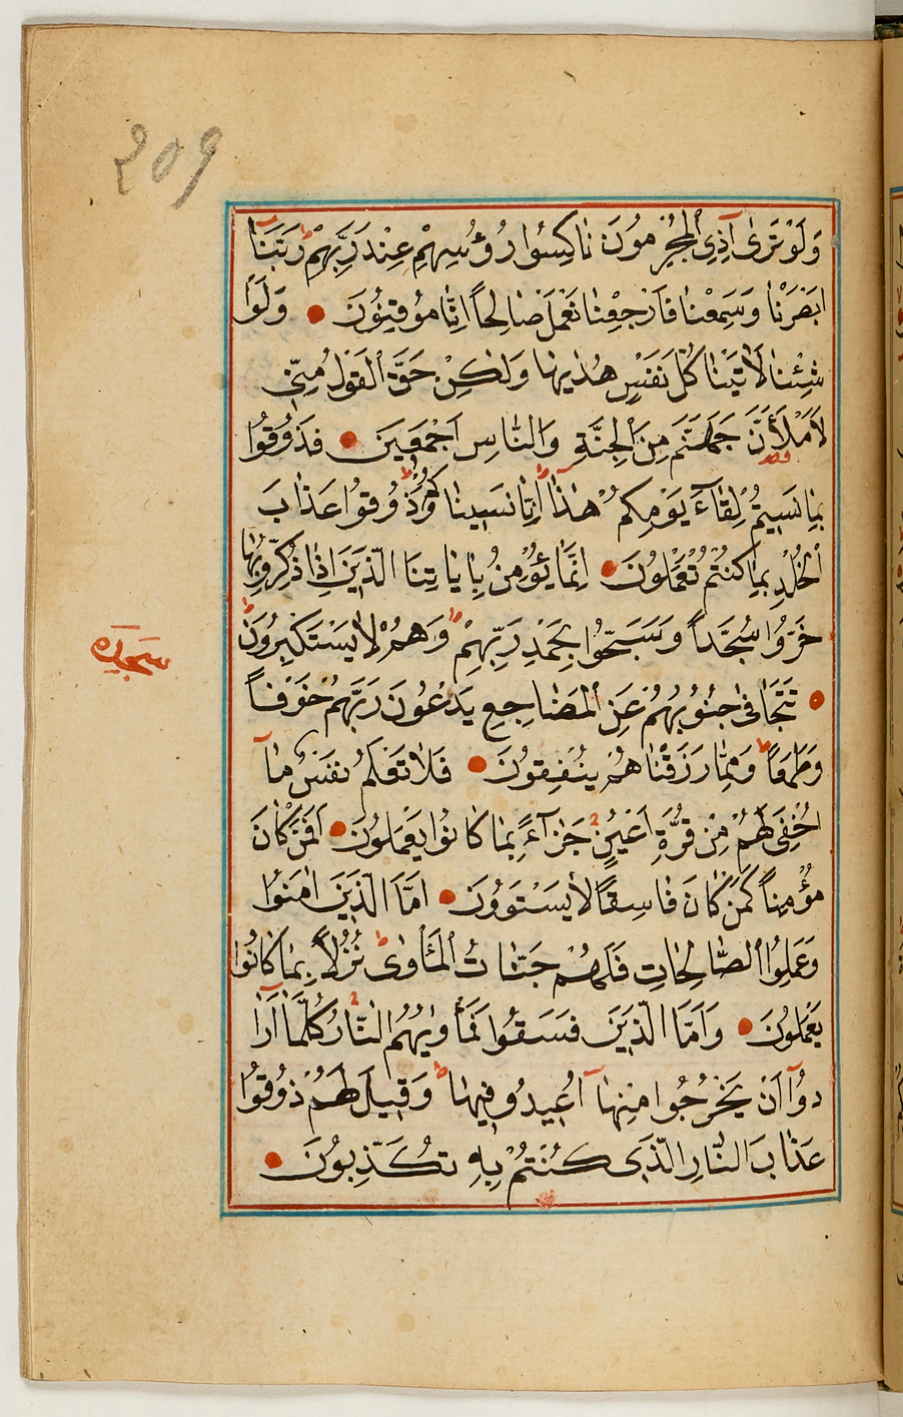 209
وَلَوْ تَرٰى اِذِ الْمُجْرِمُونَ نَاكِسُوا رُؤُسِهِمْ عِنْدَ رَبِّهِمْ رَبَّنَا
اَبْصَرْنَا وَسَمِعْنَا فَارْجِعْنَا نَعْمَلْ صَالِحًا اِنَّا مُوقِنُونَ وَلَوْ
شِئْنَا لَاٰتَيْنَا كُلَّ نَفْسٍ هُدٰيهَا وَلٰكِنْ حَقَّ الْقَوْلُ مِنّى
لَاَمْلَأَنَّ جَهَنَّمَ مِنَ الْجِنَّةِ وَالنَّاسِ اَجْمَعِينَ فَذُوقُوا
بِمَا نَسِيتُمْ لِقَاءَ يَوْمِكُمْ هٰذَا اِنَّا نَسِينَاكُمْ وَذُوقُوا عَذَابَ
الْخُلْدِ بِمَا كُنْتُمْ تَعْمَلُونَ اِنَّمَا يُؤْمِنُ بِاٰيَاتِنَا الَّذِينَ اِذَا ذُكِّرُوا بِهَا
خَرُّوا سُجَّدًا وَسَبَّحُوا بِحَمْدِ رَبِّهِمْ وَهُمْ لَا يَسْتَكْبِرُونَ
سجده
تَتَجَافٰى جُنُوبُهُمْ عَنِ الْمَضَاجِعِ يَدْعُونَ رَبَّهُمْ خَوْفًا
وَطَمَعًا وَمِمَّا رَزَقْنَاهُمْ يُنْفِقُونَ فَلَا تَعْلَمُ نَفْسٌ مَا
اُخْفِىَ لَهُمْ مِنْ قُرَّةِ اَعْيُنٍ جَزَاءً بِمَا كَانُوا يَعْمَلُونَ اَفَمَنْ كَانَ
مُؤْمِنًا كَمَنْ كَانَ فَاسِقًا لَا يَسْتَوُونَ اَمَّا الَّذِينَ اٰمَنُوا
وَعَمِلُوا الصَّالِحَاتِ فَلَهُمْ جَنَّاتُ الْمَأْوٰى نُزُلًا بِمَا كَانُوا
يَعْمَلُونَ وَاَمَّا الَّذِينَ فَسَقُوا فَمَأْوٰيهُمُ النَّارُ كُلَّمَا اَرَا
دُوا اَنْ يَخْرُجُوا مِنْهَا اُعِيدُوا فِيهَا وَقِيلَ لَهُمْ ذُوقُوا
عَذَابَ النَّارِ الَّذِى كُنْتُمْ بِهِ تُكَذِّبُونَ